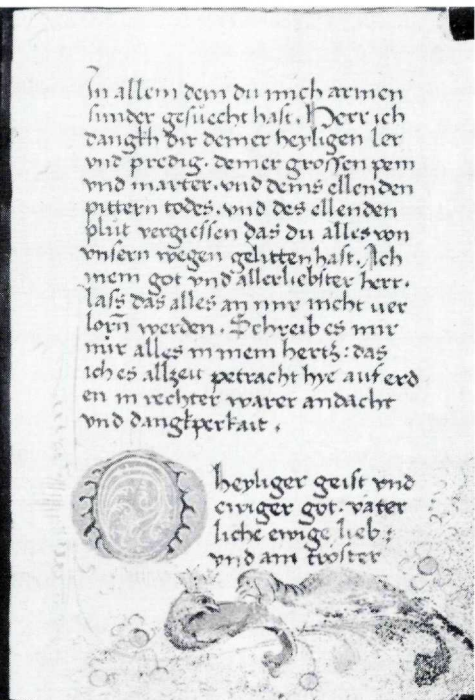 In allem dem du mich armen
sunder gesuecht hast. Herr ich
dangkh dir deiner heyligen ler
vnd predig. deiner grossen pein
vnd marter. vnd deins ellenden
pittern todes. vnd des ellenden
plůt vergiessen das du alles von
vnsern wegen gelitten hast. Ich
mein got vnd allerliebster herr.
lass das alles an mir nicht uer
lorñ werden. Schreib es mir
nůr alles in mein hertz: das
ich es allzeit petracht hye auf erd
en in rechter warer andacht
vnd dangkperkait.
O heyliger geist vnd
ewiger got. väter
liche ewige lieb:
vnd ain troster